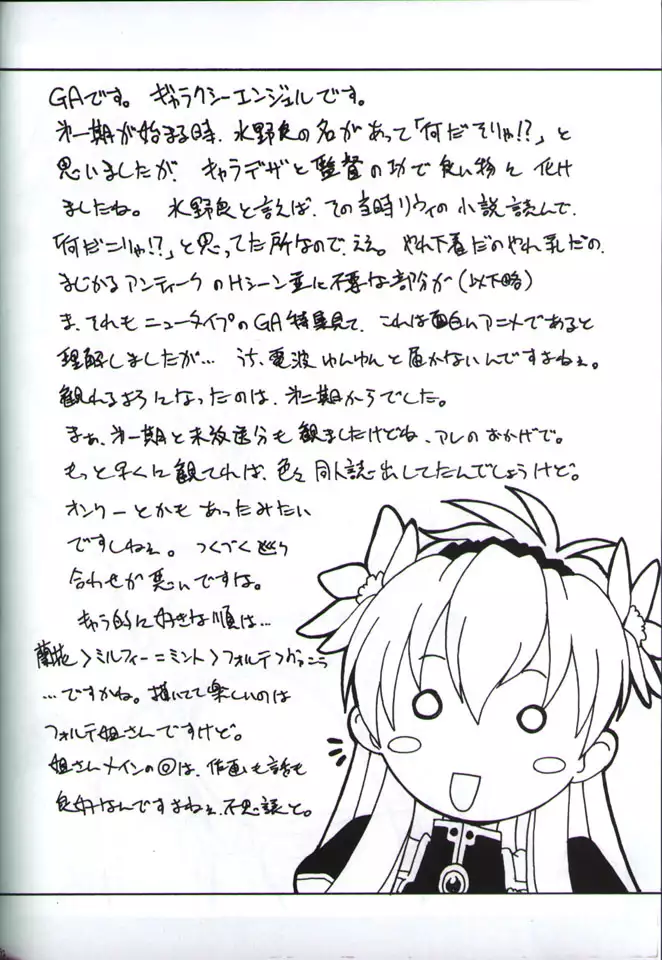 GAです。ギャラクシーエンジェルです。
第一期が始まる時、水野良の名があって「何だそりゃ!?」と
思いましたが、キャラデザと監督の功で良い物に化け
ましたね。水野良と言えば、その当時リウイの小説読んで、
「何だこりゃ!?」と思ってた所なので、ええ。やれ下着だのやれ乳だの、
まじかるアンティークのHシーン並に不要な部分が(以下略)
ま、それもニュータイプのGA特集見て、これは面白いアニメであると
理解しましたが… うち、電波ゆんゆんと届かないんですよねぇ。
観れるようになったのは、第二期からでした。
まぁ、第一期と未放送分も観ましたけどね、アレのおかげで。
もっと早くに観てれば、色々同人誌出してたんでしょうけど。
オンリーとかもあったみたい
ですしねぇ。つくづく巡り
合わせが悪いですな。
キャラ的に好きな順は…
蘭花>ミルフィー=ミント>フォルテ>
…ですかね。描いてて楽しいのは
フォルテ姐さんですけど。
姐さんメインの◎は、作画も話も
良好なんですよねぇ、不思議と。